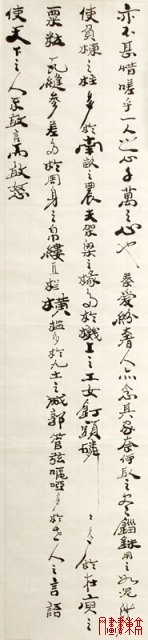 亦不甚惜嗟乎一人之心千萬之心也秦愛紛奢人亦念其家奈何取之盡錙銖用之如泥沙
使負棟之柱多於南畝之農夫架梁之椽多於機上之工女釘頭磷々多於在庾之
粟粒瓦縫參差多於周身之帛縷直欄橫檻多於九土之城郭管弦嘔啞多於市人之言語
使天下之人不敢言而敢怒